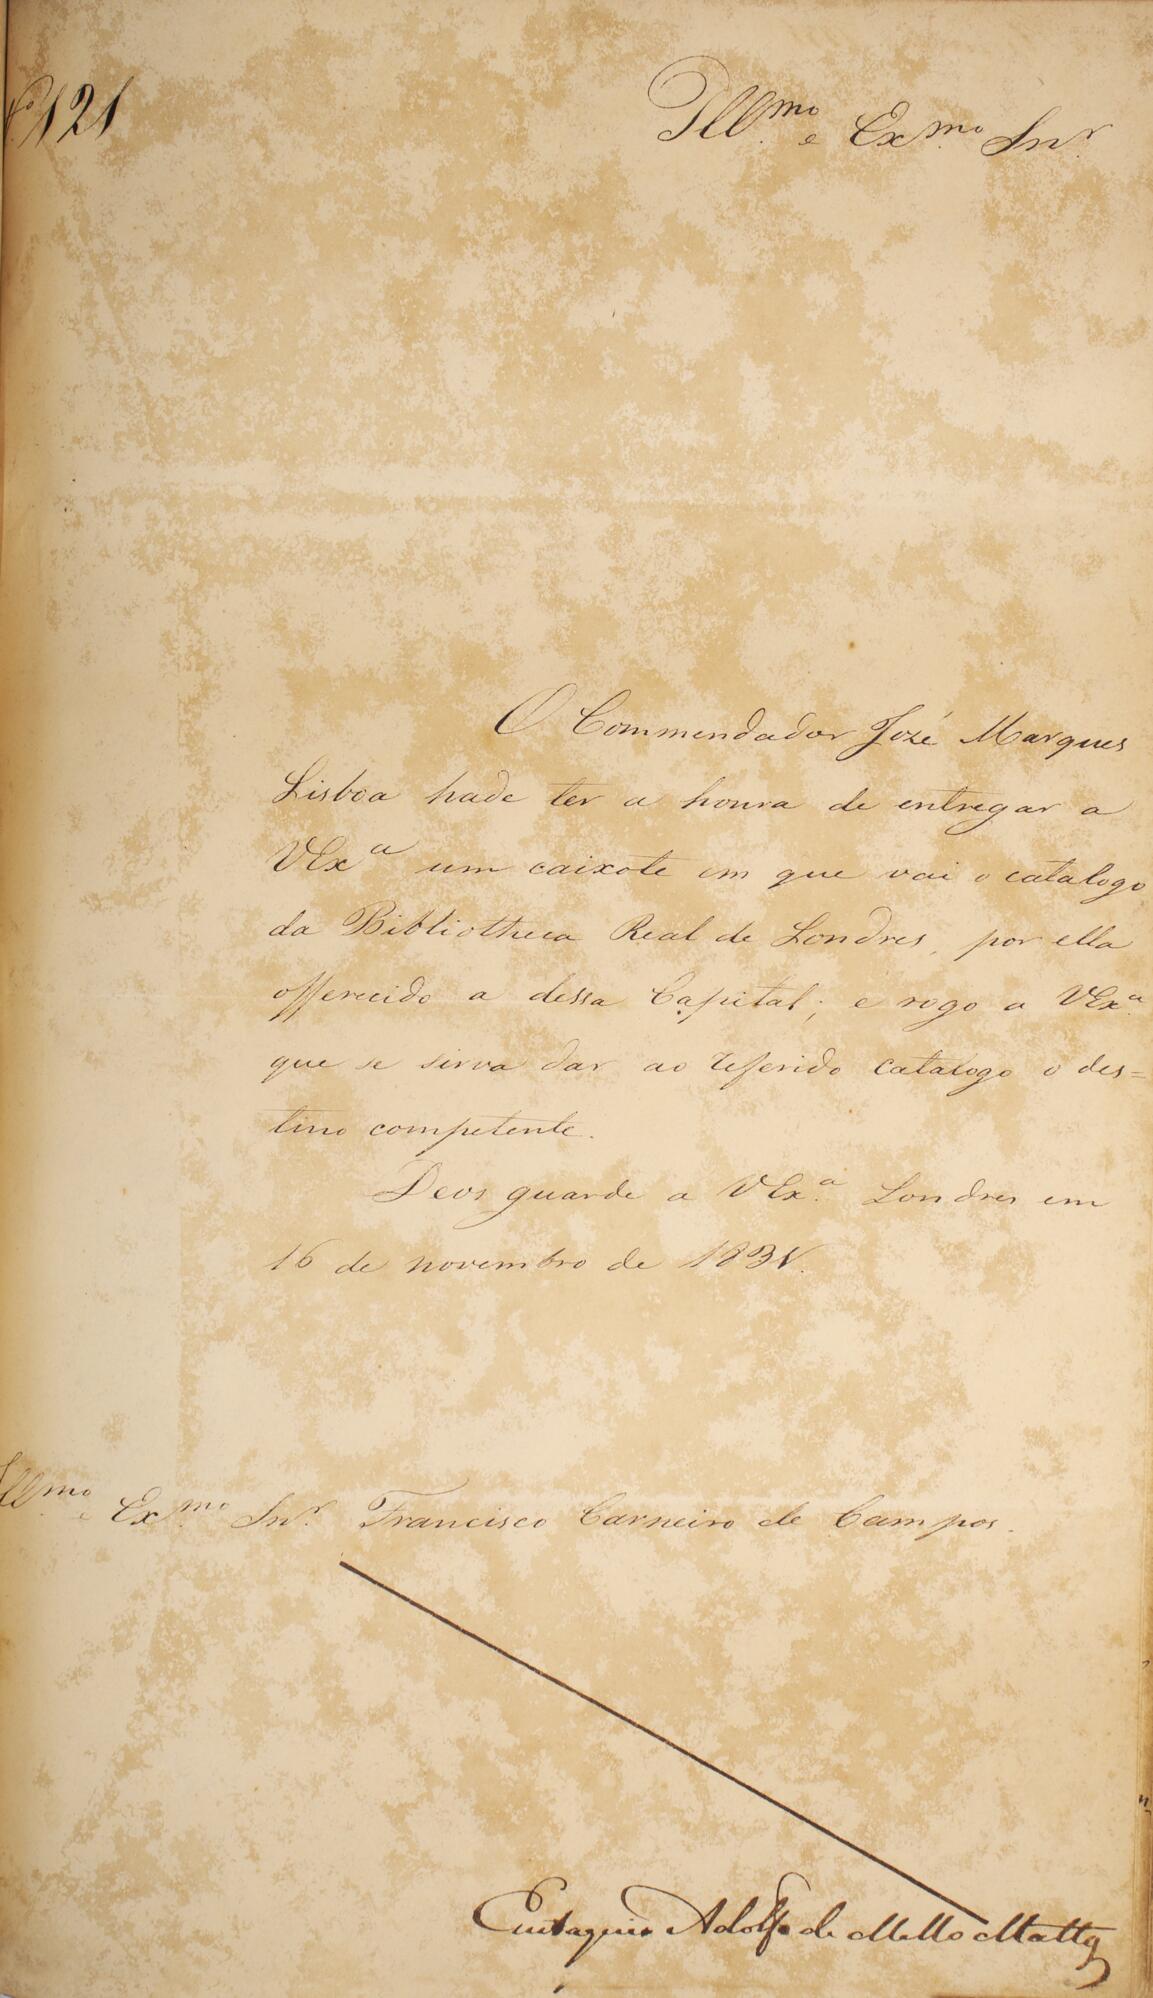 Nº 121
Illmo e Exmo Snr
O Commendador José Marques
Lisboa hade ter a honra de entregar a
VExa um caixote em que vai o catalogo
da Bibliotheca Real de Londres, por ella
offerecido a dessa Capital; e rogo a VExa
que se sirva dar ao referido catalogo o des=
tino competente.
Deos guarde a VExa Londres em
16 de novembro de
Illmo e Exmo Snr Francisco Carneiro de Campos.
Eustaquio Adolfo de Mello Mattos